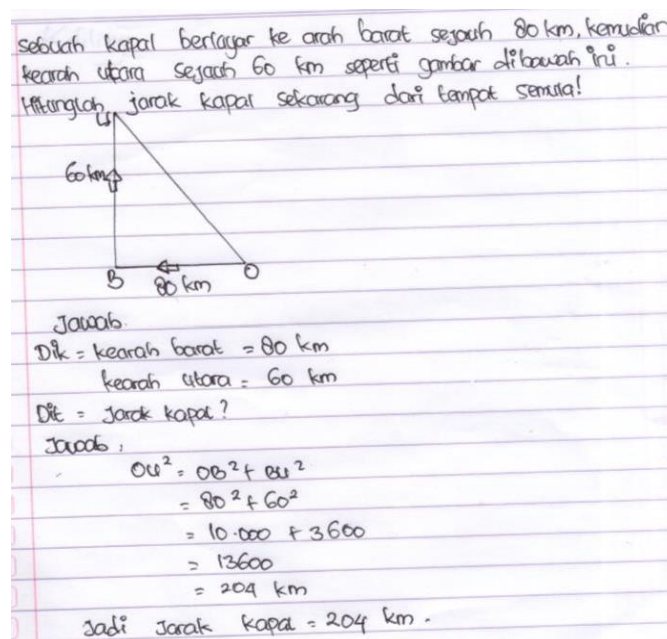 sebuah kapal berlayar ke arah barat sejauh 80 km, kemudian
kearah utara sejauh 60 km seperti gambar dibawah ini.
Hitunglah jarak kapal sekarang dari tempat semula!
U
60 km
B
80 km
O
Jawab.
Dik = kearah barat = 80 km
kearah utara = 60 km
Dit = Jarak kapal?
Jawab,
OU² = OB² + BU²
= 80² + 60²
= 10.000 + 3600
= 13600
= 204 km
Jadi Jarak kapal = 204 km.